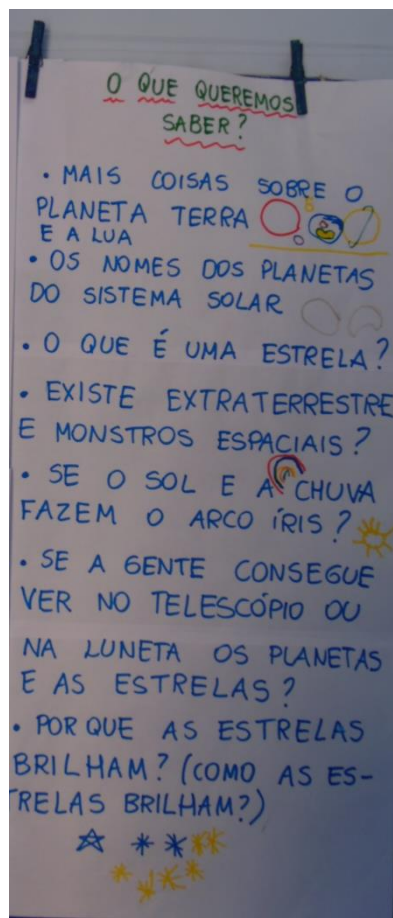 O QUE QUEREMOS
SABER?
• MAIS COISAS SOBRE O
PLANETA TERRA
E A LUA
• OS NOMES DOS PLANETAS
DO SISTEMA SOLAR
• O QUE É UMA ESTRELA?
• EXISTE EXTRATERRESTRE
E MONSTROS ESPACIAIS?
• SE O SOL E A CHUVA
FAZEM O ARCO ÍRIS?
• SE A GENTE CONSEGUE
VER NO TELESCÓPIO OU
NA LUNETA OS PLANETAS
E AS ESTRELAS?
• POR QUE AS ESTRELAS
BRILHAM? (COMO AS ES-
TRELAS BRILHAM?)